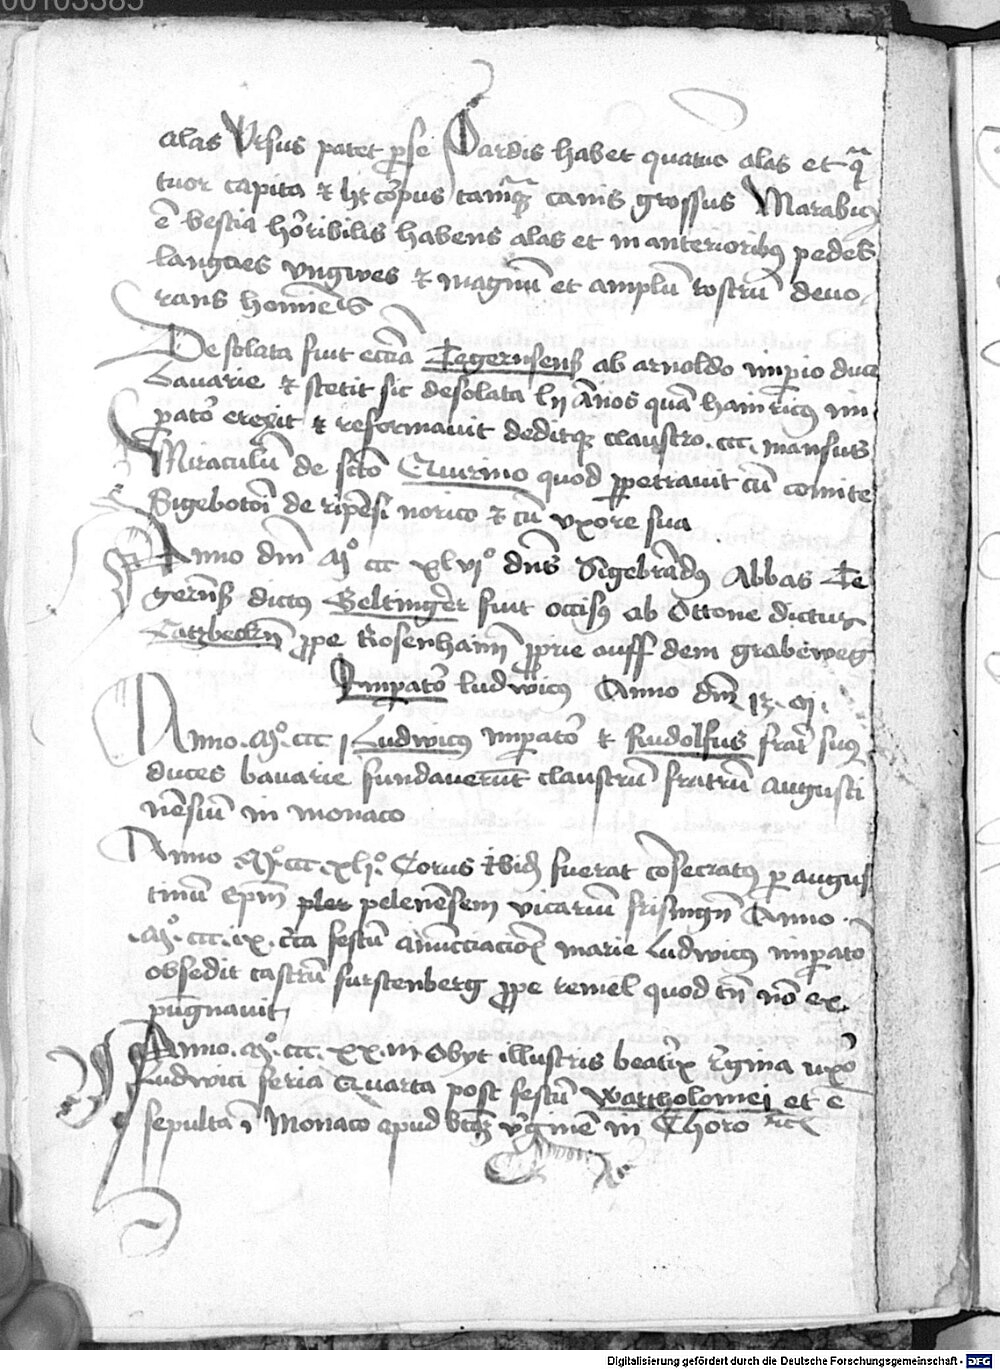 00103385
alas Ursus patet per se Pardis habet quatuor alas et q̄
tuor capita et ht corpus tamq̄ canis grossus Marabuᷤ
ē bestia horribilis habens alas et in anterioribus pedes
langaes ungwes et magnū et amplū rostrū devo
rans homīes
Desolata fuit eccīa Tegernsens ab arnoldo imperio duce
Bavarie et stetit sic desolata lij Annos quā hainricus im
pator erexit et reformavit deditque claustro .ccc. mansus
Miraculū de scto Quirino quod perpetravit cū comite
Sigebotoni de ripēsi norico et cū uxore sua
Anno dm̄ Mo ccc xlvio dn̄s Sigebrādus Abbas Te
gerns dictus Geltinger fuit occisus ab Ottone dictus
Katzbeckn̄ prope Rosenhaim proprie auff dem grabēweg
Imperator ludwicus Anno dm̄
Anno .Mo. ccc j Ludwicus imperator et Rudolfus frater suus
duces bavarie fundaverūt claustrū fratrū Augusti
nēsiū in monaco
Anno Mo. ccc. xljo. Corus ibid fuerat cōsecratus per augus
tinū Epm̄ pelenēsem vicariū frisingn̄ Anno
.Mo. ccc. ix. cca festū anūcciacionis marie Ludwicus imperator
obsedit castrū furstenberg prope remel quod tn̄ nō ex
pugnavit
Anno .Mo. ccc. xxiii Obyt illustris beatrix regina uxor
Ludwici feria Quarta post festū Wartholomei et ē
sepulta ī Monaco apud btām virginē in Choro etc
Digitalisierung gefördert durch die Deutsche Forschungsgemeinschaft - DFG